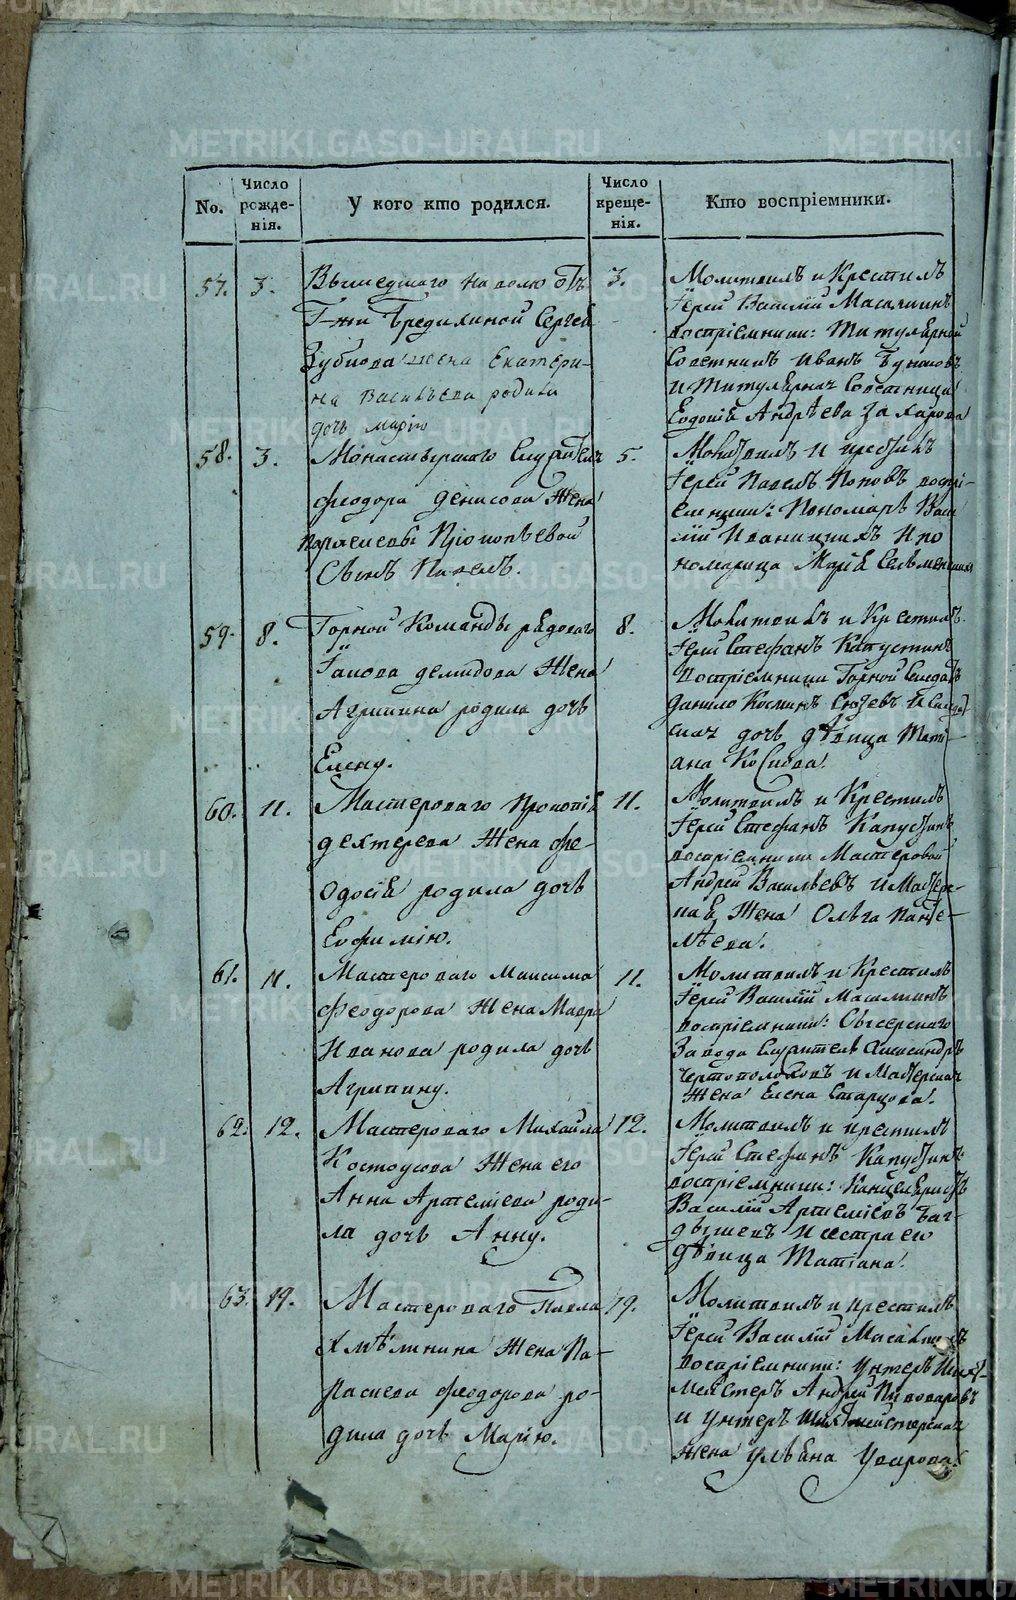 No.
Число рожде- нія.
У кого кто родился.
Число креще- нія.
Кто воспріемники.
57.
3.
Вышедшаго на волю отъ
Г-жи Бредихиной Сергея
Зубкова жена Екатери-
на Васильева родила
дочь Марію
3.
Молитвилъ и Крестилъ
Іерей Василій Масалкинъ
воспріемники: Титулярной
Советникъ Иванъ
и Титулярная Советница
Евдокія Андрѣева Захарова
58.
3.
Монастырскаго Служителя
Феодора Денисова Жена
Прокопьевой
Сынъ Павелъ.
5.
Молитвилъ и крестилъ
Іерей Павелъ Поповъ воспрі-
емники: Пономарь Васи
лій Иваницкихъ и по
номарица Марія
59.
8.
Горной Команды рядоваго
Іакова Демидова Жена
Агрипина родила дочь
Елену.
8.
Молитвилъ и Крестилъ
Іерей Стефанъ Капустинъ
воспріемники Горной Солдатъ
Данило Косминъ Сюзевъ и Солдат
ская дочь дѣвица Тати-
ана Коснова.
60.
11.
Мастероваго Прокопія
Дехтерева Жена Фе-
одосія родила дочь
Евфимію.
11.
Молитвилъ и Крестилъ
Іерей Стефанъ Капустинъ
воспріемники Мастеровой
Андрей Васильевъ и Мастерс-
кая Жена Ольга Панте-
лѣева.
61.
11.
Мастероваго Максима
Феодорова Жена Мавра
Иванова родила дочь
Агрипину.
11.
Молитвилъ и Крестилъ
Іерей Василій Масалкинъ
воспріемники: Сысерскаго
Завода Служитель Александръ
Чертополоховъ и Мастерская
Жена Елена Старцова.
62.
12.
Мастероваго Михайла
Костоусова Жена его
Анна Артеміева роди-
ла дочь Анну.
12.
Молитвилъ и крестилъ
Іерей Стефанъ Капустинъ
воспріемники: Канцеляристъ
Василій Артеміевъ Баг-
дышевъ и сестра его
дѣвица Татіана.
63.
19.
Мастероваго Павла
Хмѣлинина Жена Па-
раскева Феодорова ро-
дила дочь Марію.
19.
Молитвилъ и крестилъ
Іерей Василій Масалкинъ
воспріемники: Унтеръ Шихт-
мейстеръ Андрей Пивоваровъ
и Унтеръ Шихтмейстерская
жена Ульяна Уварова.
METRIKI.GASO-URAL.RU